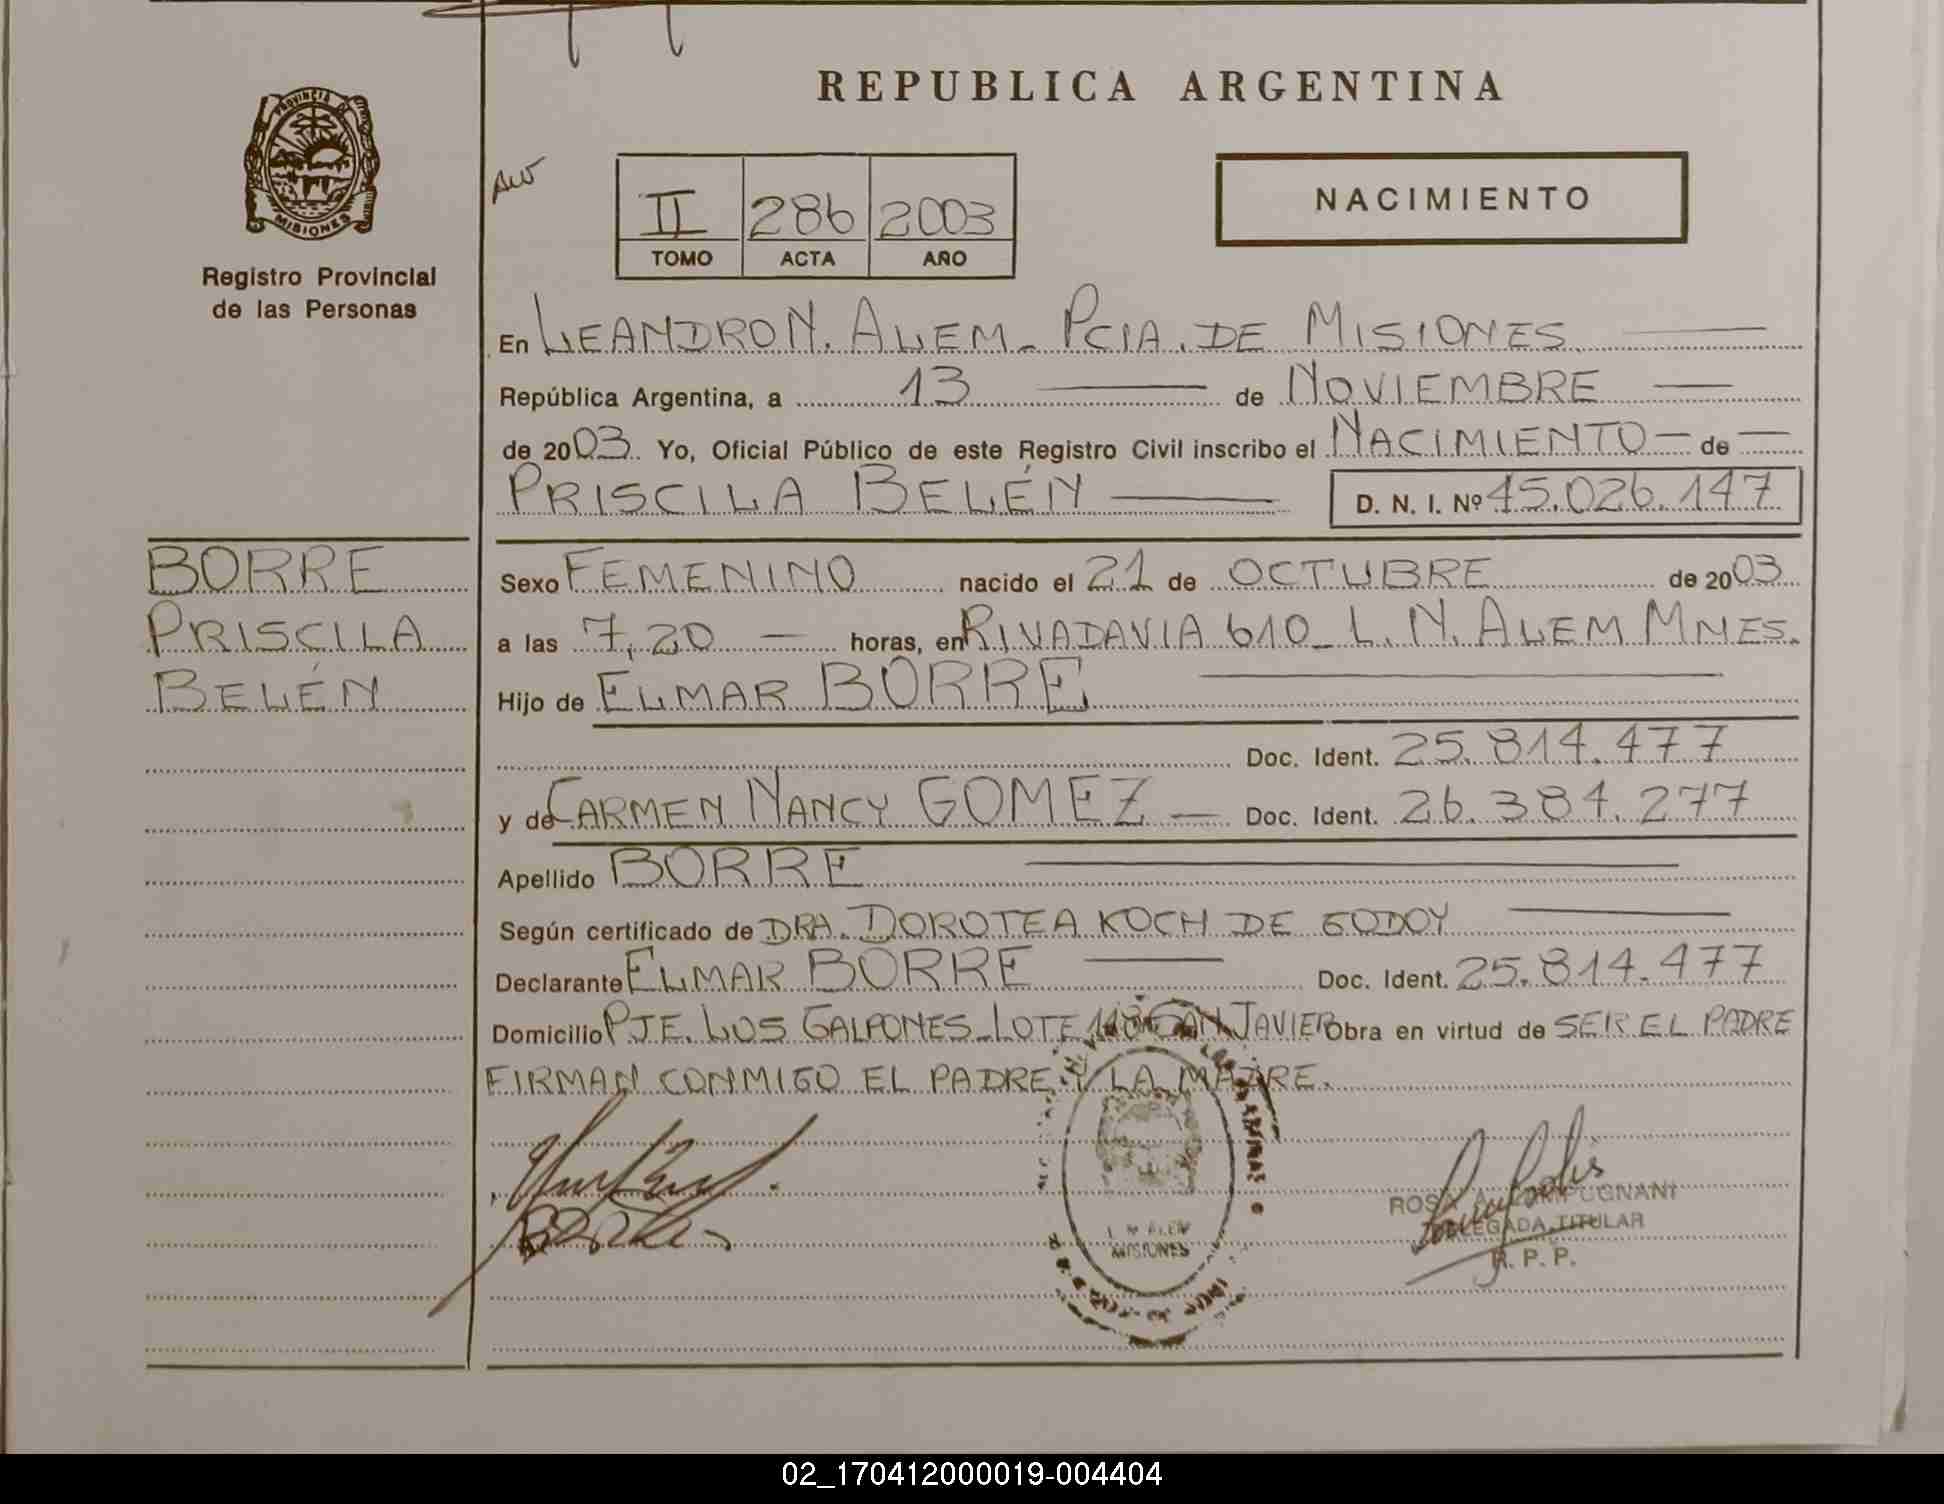 REPUBLICA ARGENTINA
PROVINCIA DE
MISIONES
Registro Provincial
de las Personas
II 286 2003
TOMO ACTA AÑO
NACIMIENTO
En LEANDRO N. ALEM - PCIA. DE MISIONES
República Argentina, a 13 de NOVIEMBRE
de 2003. Yo, Oficial Público de este Registro Civil inscribo el NACIMIENTO de
PRISCILA BELÉN D. N. I. Nº 45.026.147
BORRE
PRISCILA
BELÉN
Sexo FEMENINO nacido el 21 de OCTUBRE de 2003
a las 7,20 horas, en RIVADAVIA 610 - L. N. ALEM MNES.
Hijo de ELMAR BORRE
Doc. Ident. 25.814.477
y de CARMEN NANCY GOMEZ Doc. Ident. 26.384.277
Apellido BORRE
Según certificado de DRA. DOROTEA KOCH DE GODOY
Declarante ELMAR BORRE Doc. Ident. 25.814.477
Domicilio PJE. LOS GALPONES - LOTE 118 SAN JAVIER Obra en virtud de SER EL PADRE
FIRMAN CONMIGO EL PADRE Y LA MADRE.
L. N. ALEM
MISIONES
ROSA A.
DELEGADA TITULAR
R. P. P.
02_170412000019-004404